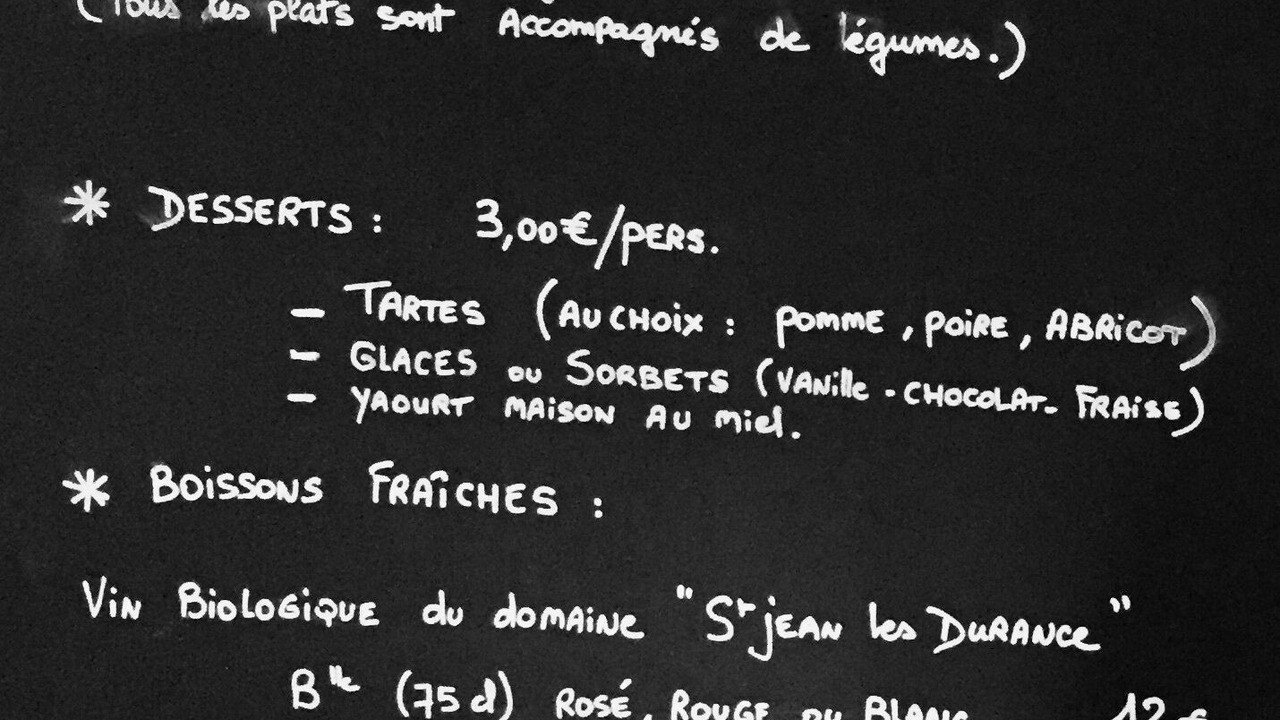 (Tous les plats sont Accompagnés de légumes.)
* DESSERTS : 3,00€/PERS.
- TARTES (AU CHOIX : POMME, POIRE, ABRICOT)
- GLACES ou SORBETS (VANille - CHOCOLAT - FRAISE)
- YAOURT MAISON AU Miel.
* BOISSONS FRAÎCHES :
Vin BIOLOGIQUE du domaine "St jEAN les DURANCE"
Blle (75 cl) ROSÉ, ROUGE ou BLANC 12 €